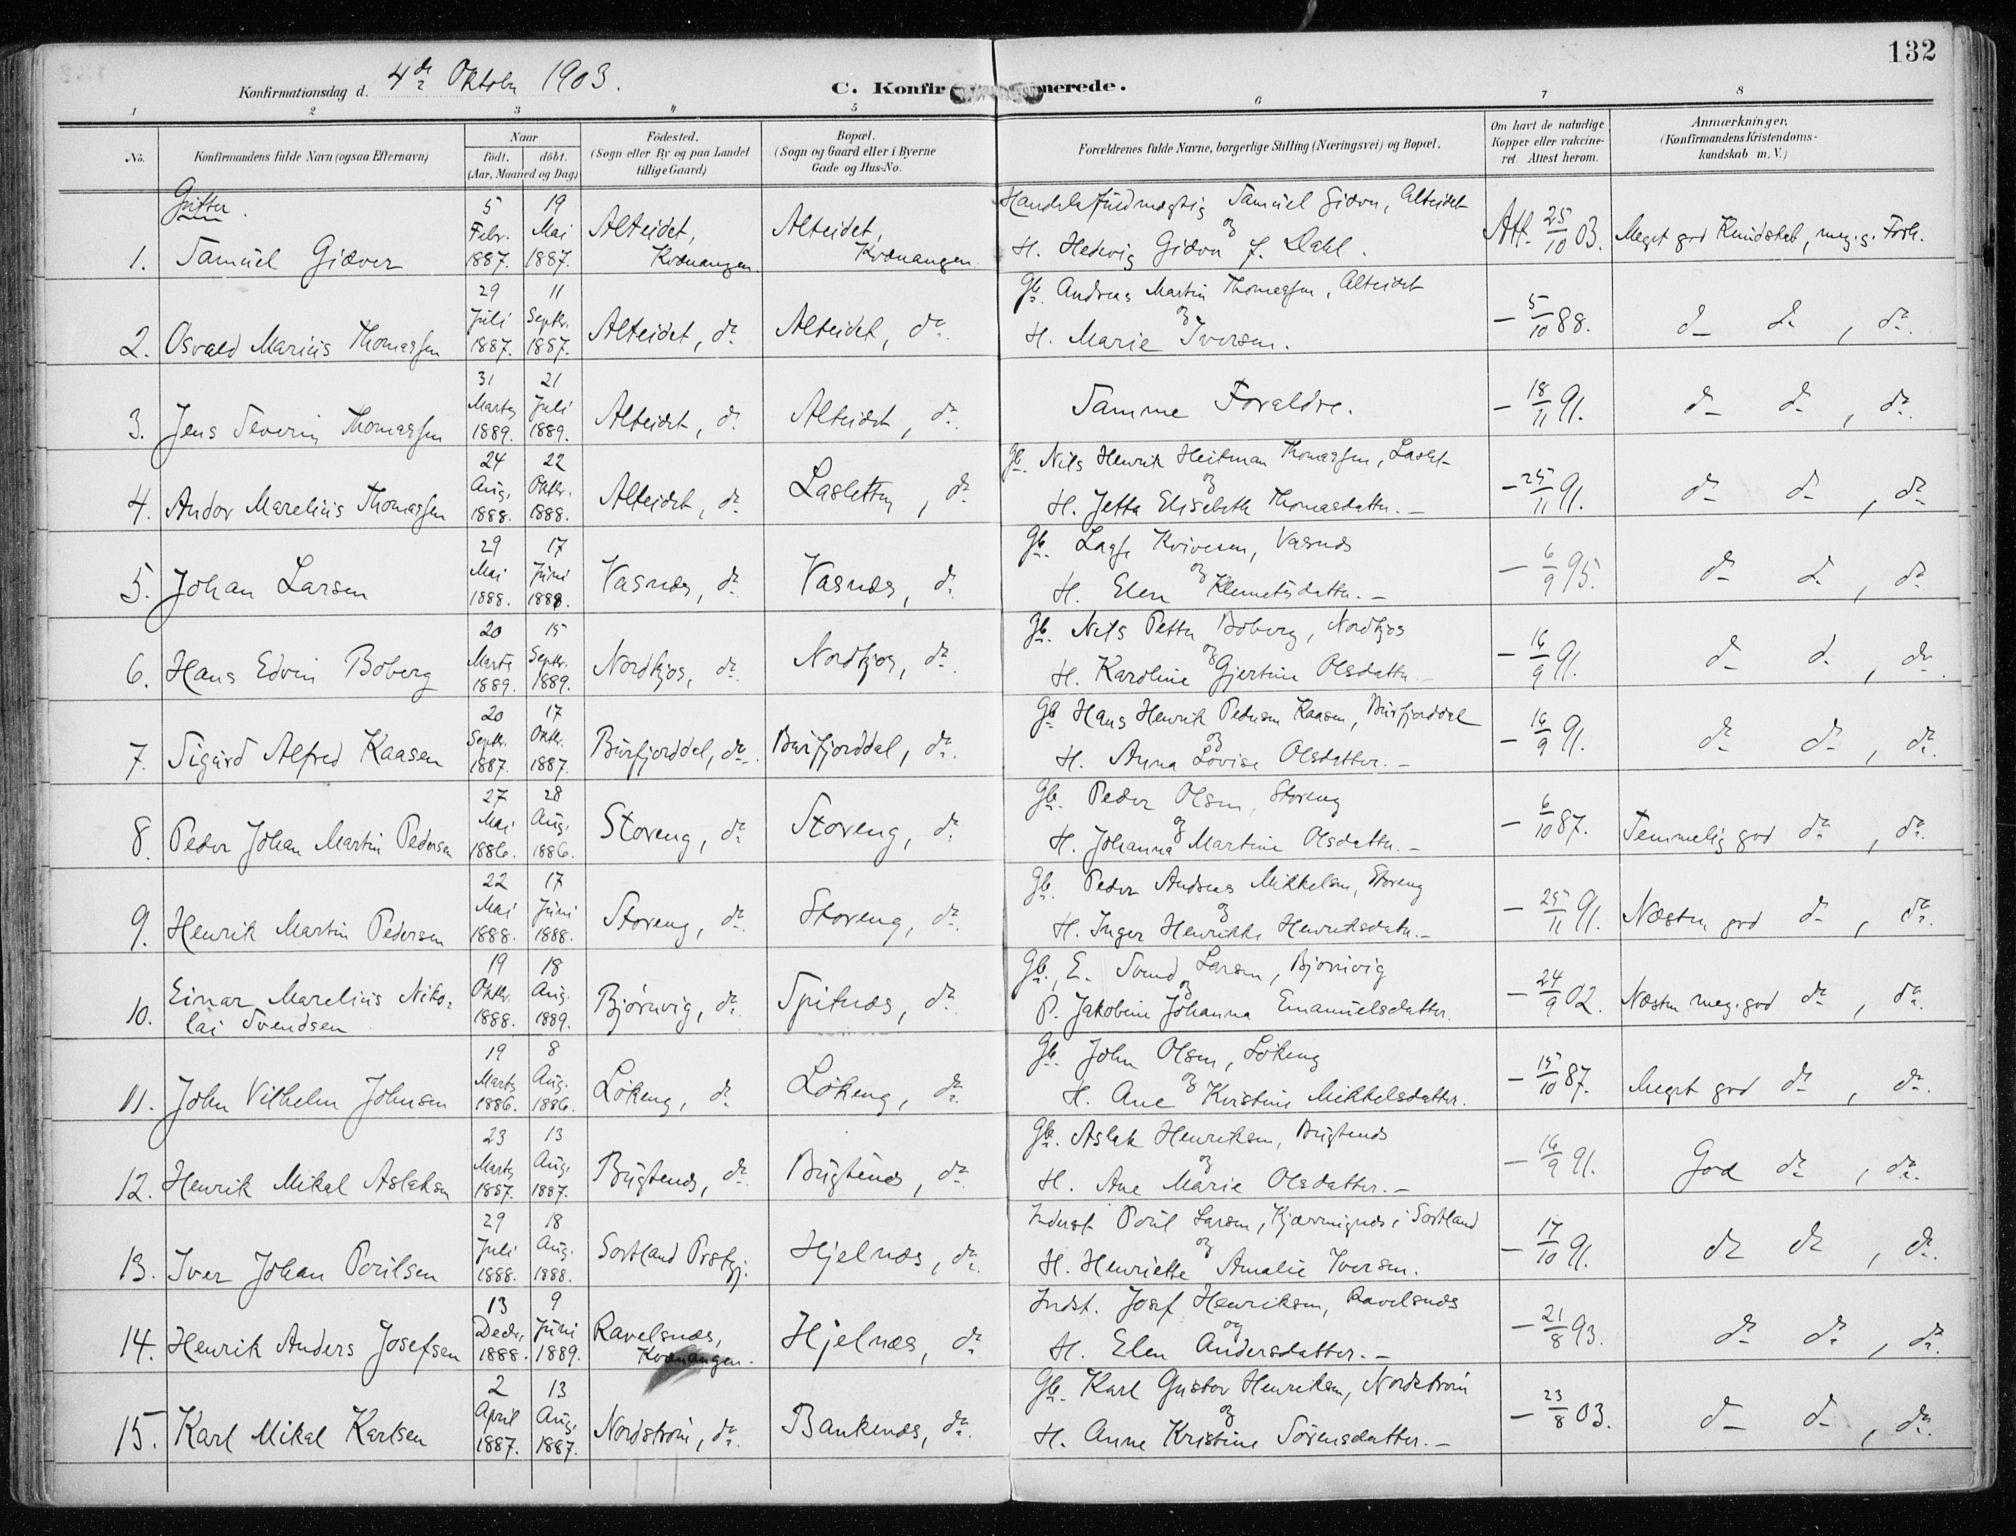 132
Konfirmationsdag d. 4de Oktober 1903.
C. Konfir merede.
1 2 3 4 5 6 7 8
No. Konfirmandens fulde Navn (ogsaa Efternavn) Naar født. døbt. (Aar, Maaned og Dag) Fødested. (Sogn eller By og paa Landet tillige Gaard) Bopæl. (Sogn og Gaard eller i Byerne Gade og Hus-No. Forældrenes fulde Navne, borgerlige Stilling (Næringsvei) og Bopæl. Om havt de naturlige Kopper eller vakcineret. Attest herom. Anmærkninger. (Konfirmandens Kristendomskundskab m. V.)
Gutter.
1. Samuel Giæver 5 Febr. 1887. 19 Mai 1887. Alteidet, Kvænangen. Alteidet, Kvænangen. Handelsfuldmægtig Samuel Giæver, Alteidet og H. Hedvig Giæver f. Dahl. Att. 25/10 03. Meget god Kundskab, meg. g. Forh.
2. Osvald Marius Thomassen 29 Juli 1887. 11 Septbr. 1887. Alteidet, do. Alteidet, do. Gb. Andreas Martin Thomassen, Alteidet og H. Marie Iversen. – 5/10 88. do do, do.
3. Jens Severin Thomassen 31 Marts 1889. 21 Juli 1889. Alteidet, do. Alteidet, do. Samme Forældre. – 18/11 91. do do, do.
4. Andor Marelius Thomassen 24 Aug. 1888. 22 Oktbr. 1888. Alteidet, do. Lasletten, do. Gb. Nils Henrik Heitman Thomassen, Laslet- og H. Jetta Elisabeth Thomasdatter. – – 25/11 91. do do, do
5. Johan Larsen 29 Mai 1888. 17 Juni 1888. Vasnæs, do. Vasnæs, do. Gb. Lasse Kvivesen, Vasnæs og H. Elen Klemetsdatter. – – 6/9 95. do do, do
6. Hans Edvin Boberg 20 Marts 1889. 15 Septbr. 1889. Nordkjos, do. Nordkjos, do. Gb. Nils Petter Boberg, Nordkjos og H. Karoline Gjertine Olsdatter. – – 16/9 91. do do, do.
7. Sigurd Alfred Kaasen 20 Septbr. 1887. 17 Oktbr. 1887. Burfjorddal, do. Burfjorddal, do. Gb Hans Henrik Pedersen Kaasen, Burfjorddal og H. Anna Lovise Olsdatter. – – 16/9 91. do do, do.
8. Peder Johan Martin Pedersen 27 Mai 1886. 28 Aug. 1886. Storeng, do Storeng, do. Gb. Peder Olsen, Storeng og H. Johanna Martine Olsdatter. – – 6/10 87. Temmelig god do, do.
9. Henrik Martin Pedersen 22 Mai 1888. 17 Juni 1888. Storeng, do. Storeng, do. Gb. Peder Andreas Mikkelsen, Storeng og H. Inger Henrikke Henriksdatter. – – 25/11 91. Næsten god do, do.
10. Einar Marelius Nikolai Svendsen 19 Oktbr. 1888. 18 Aug. 1889. Bjørnvig, do. Spitnæs, do. Gb., E. Svend Larsen, Bjørnvig og P. Jakobine Johanna Emanuelsdatter. – 24/9 02. Næsten meg. god do, do.
11. John Vilhelm Johnsen 19 Marts 1886. 8 Aug. 1886. Løkeng, do. Løkeng, do. Gb. John Olsen, Løkeng og H. Ane Kristine Mikkelsdatter. – 15/10 87. Meget god do, do.
12. Henrik Mikal Aslaksen 23 Marts 1887. 13 Aug. 1887. Bugtenæs, do. Bugtenæs, do. Gb. Aslak Henriksen, Bugtenæs og H. Ane Marie Olsdatter. – – 16/9 91. God do, do.
13. Iver Johan Poulsen 29 Juli 1888. 18 Aug. 1888. Sortland Prstgj. Hjelnæs, do. Inderst Poul Larsen, i Sortland og H. Henriette Amalie Iversen. – 17/10 91. do do, do.
14. Henrik Anders Josefsen 13 Decbr. 1888. 9 Juni 1889. Ravelsnæs, Kvænangen. Hjelnæs, do. Indst. Josef Henriksen, Ravelsnæs og H. Elen Andersdatter. – – 21/8 93. do do, do.
15. Karl Mikal Karlsen 2 April 1887. 13 Aug. 1887. Nordstrøm, do. Bankenæs, do. Gb. Karl Gustav Henriksen, Nordstrøm og H. Anne Kristine Sørensdatter. – – 23/8 03. do do, do.